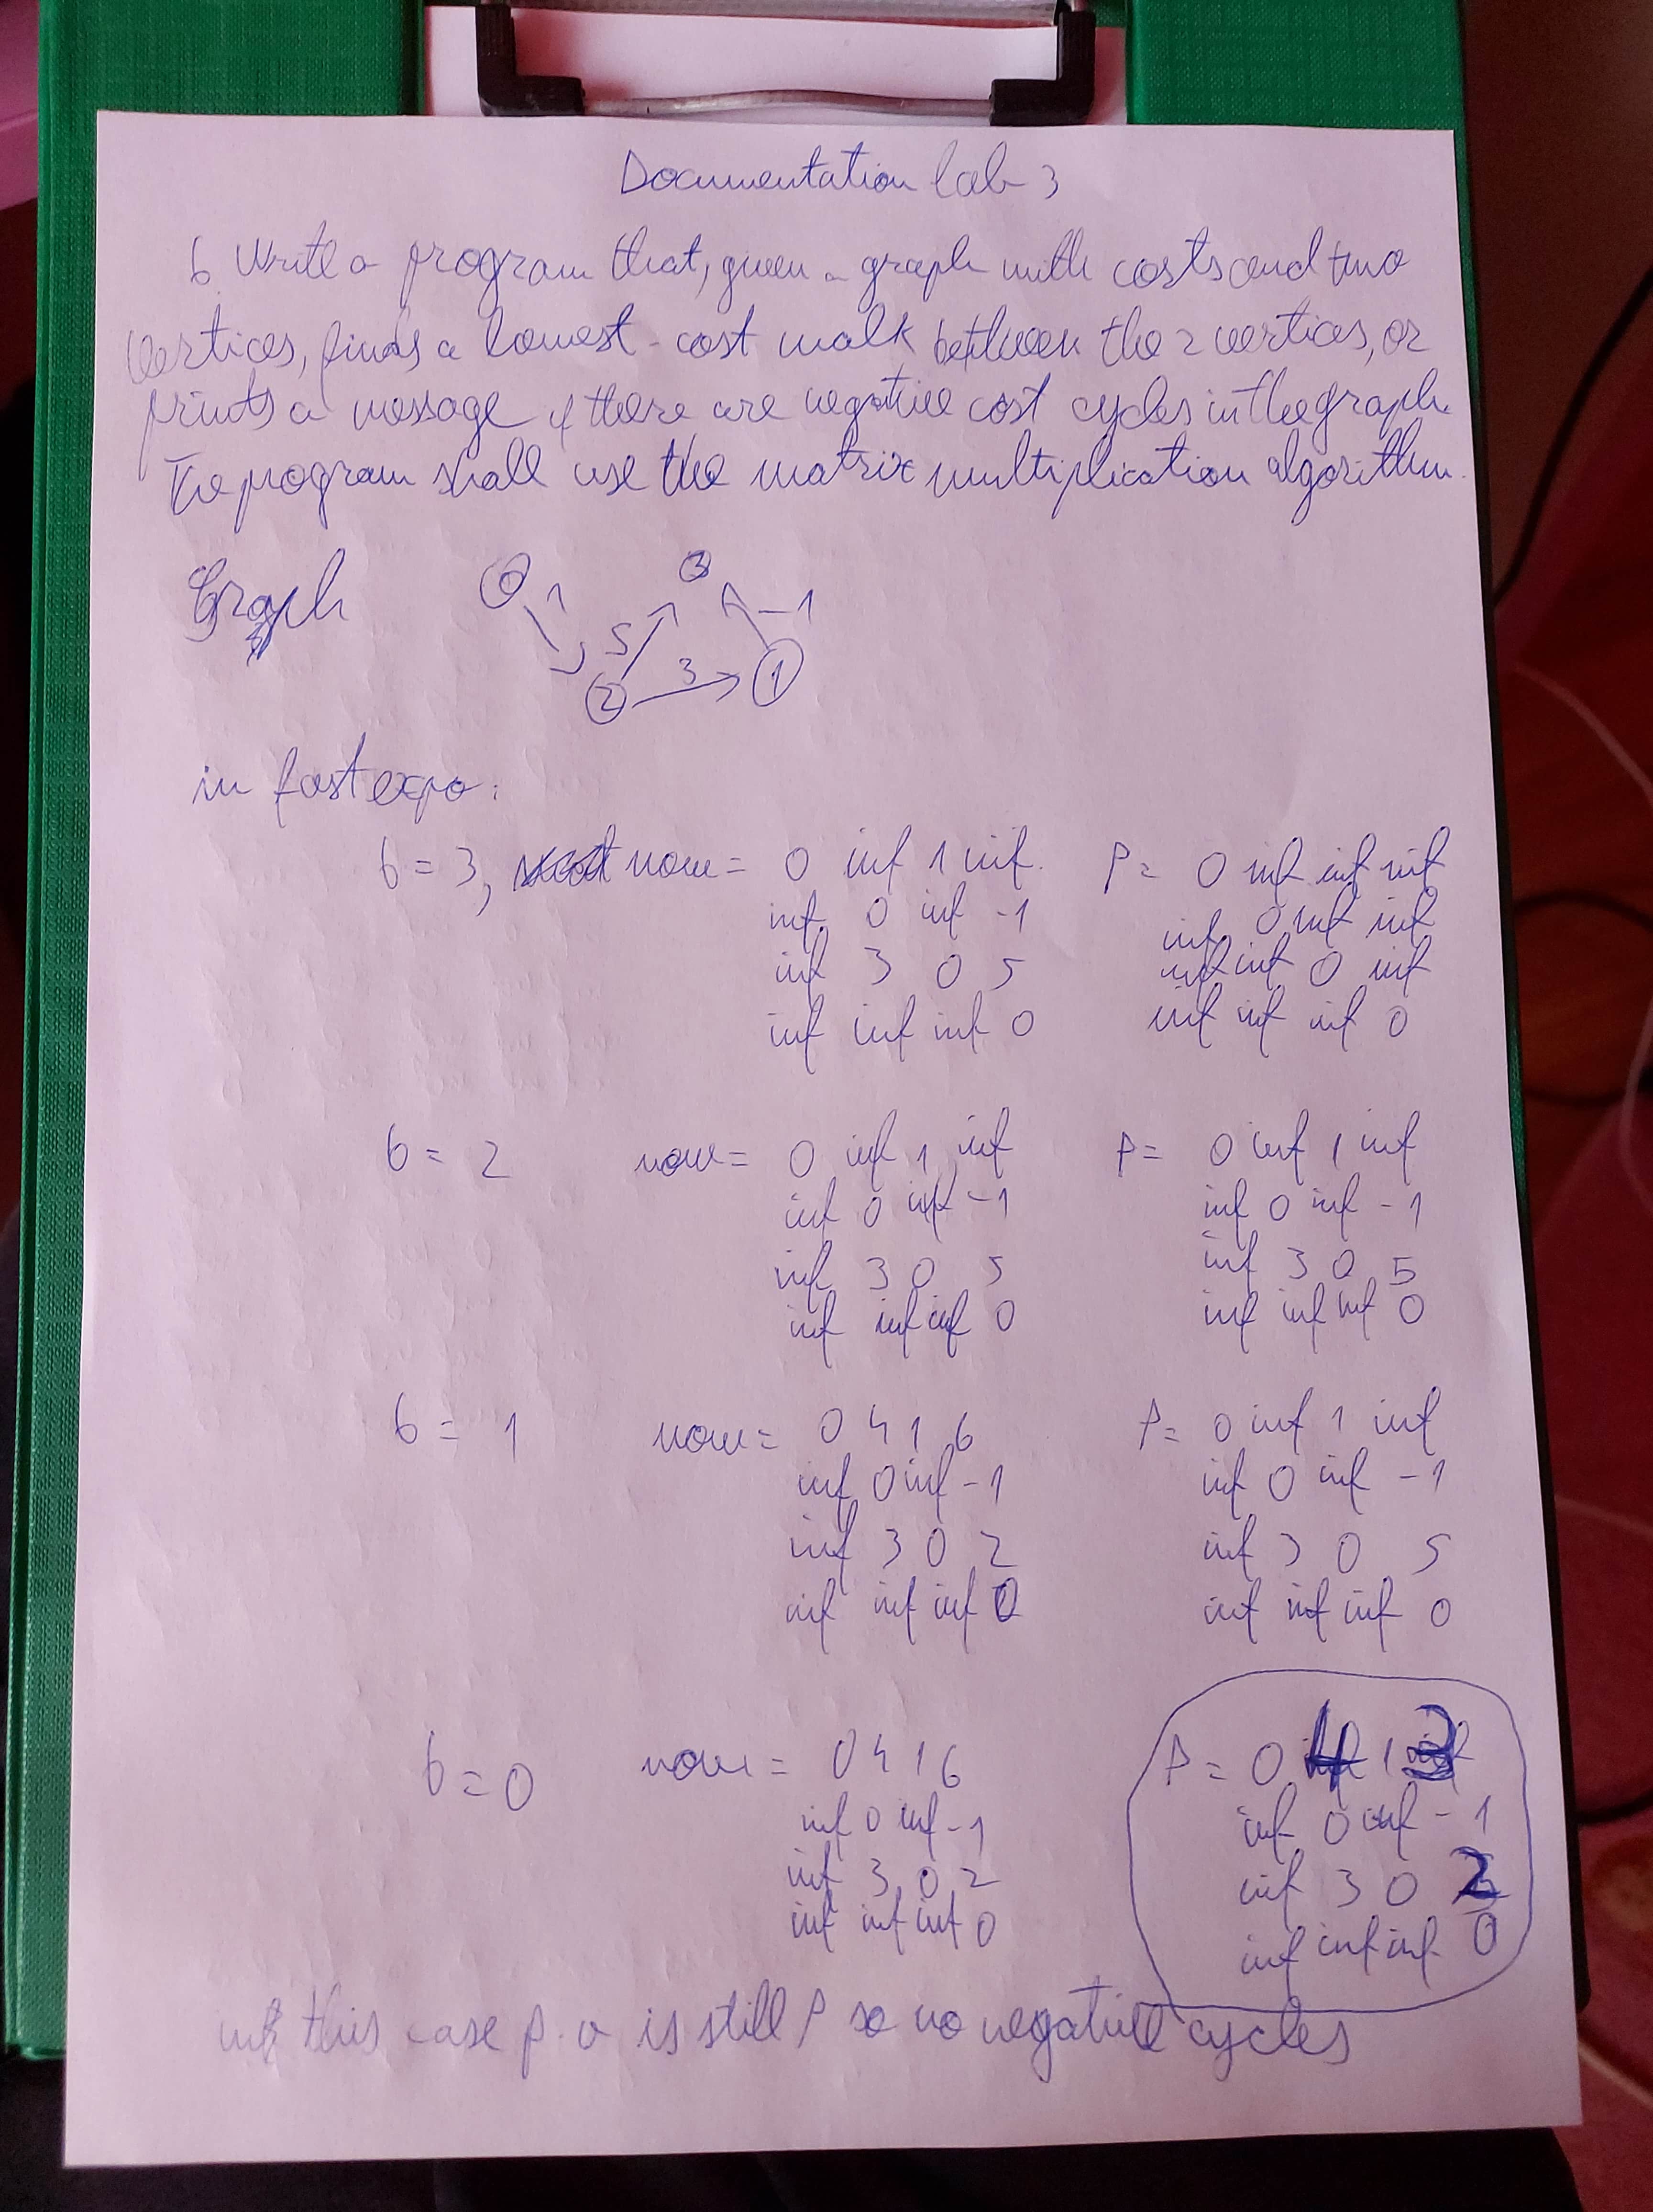 Documentation lab 3
6 Write a program that, given a graph with costs and two
vertices, finds a lowest-cost walk between the 2 vertices, or
prints a message if there are negative cost cycles in the graph.
The program shall use the matrix multiplication algorithm.
Graph
0 1 3 -1
5
2 3 1
in fastexpo:
b = 3, now = 0 inf 1 inf P = 0 inf inf inf
inf 0 inf -1 inf 0 inf inf
inf 3 0 5 inf inf 0 inf
inf inf inf 0 inf inf inf 0
b = 2 now = 0 inf 1 inf P = 0 inf 1 inf
inf 0 inf -1 inf 0 inf -1
inf 3 0 5 inf 3 0 5
inf inf inf 0 inf inf inf 0
b = 1 now = 0 4 1 6 P = 0 inf 1 inf
inf 0 inf -1 inf 0 inf -1
inf 3 0 2 inf 3 0 5
inf inf inf 0 inf inf inf 0
b = 0 now = 0 4 1 6 P = 0 4 1 3
inf 0 inf -1 inf 0 inf -1
inf 3 0 2 inf 3 0 2
inf inf inf 0 inf inf inf 0
this case p. is still P so no negative cycles